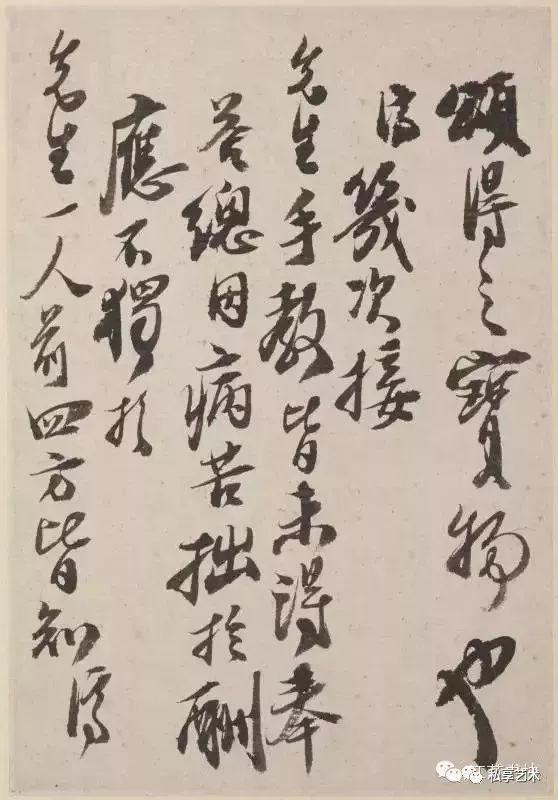 頌得之寶物也
濟幾次接
先生手教皆未得奉
答總因病苦拙於酬
應不獨於
先生一人前四方皆知濟
私享艺术